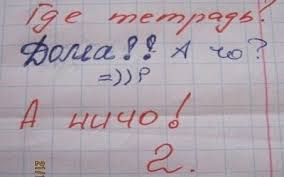 Где тетрадь!
Дома!! А чо?
=))Р
А ничо!
2.